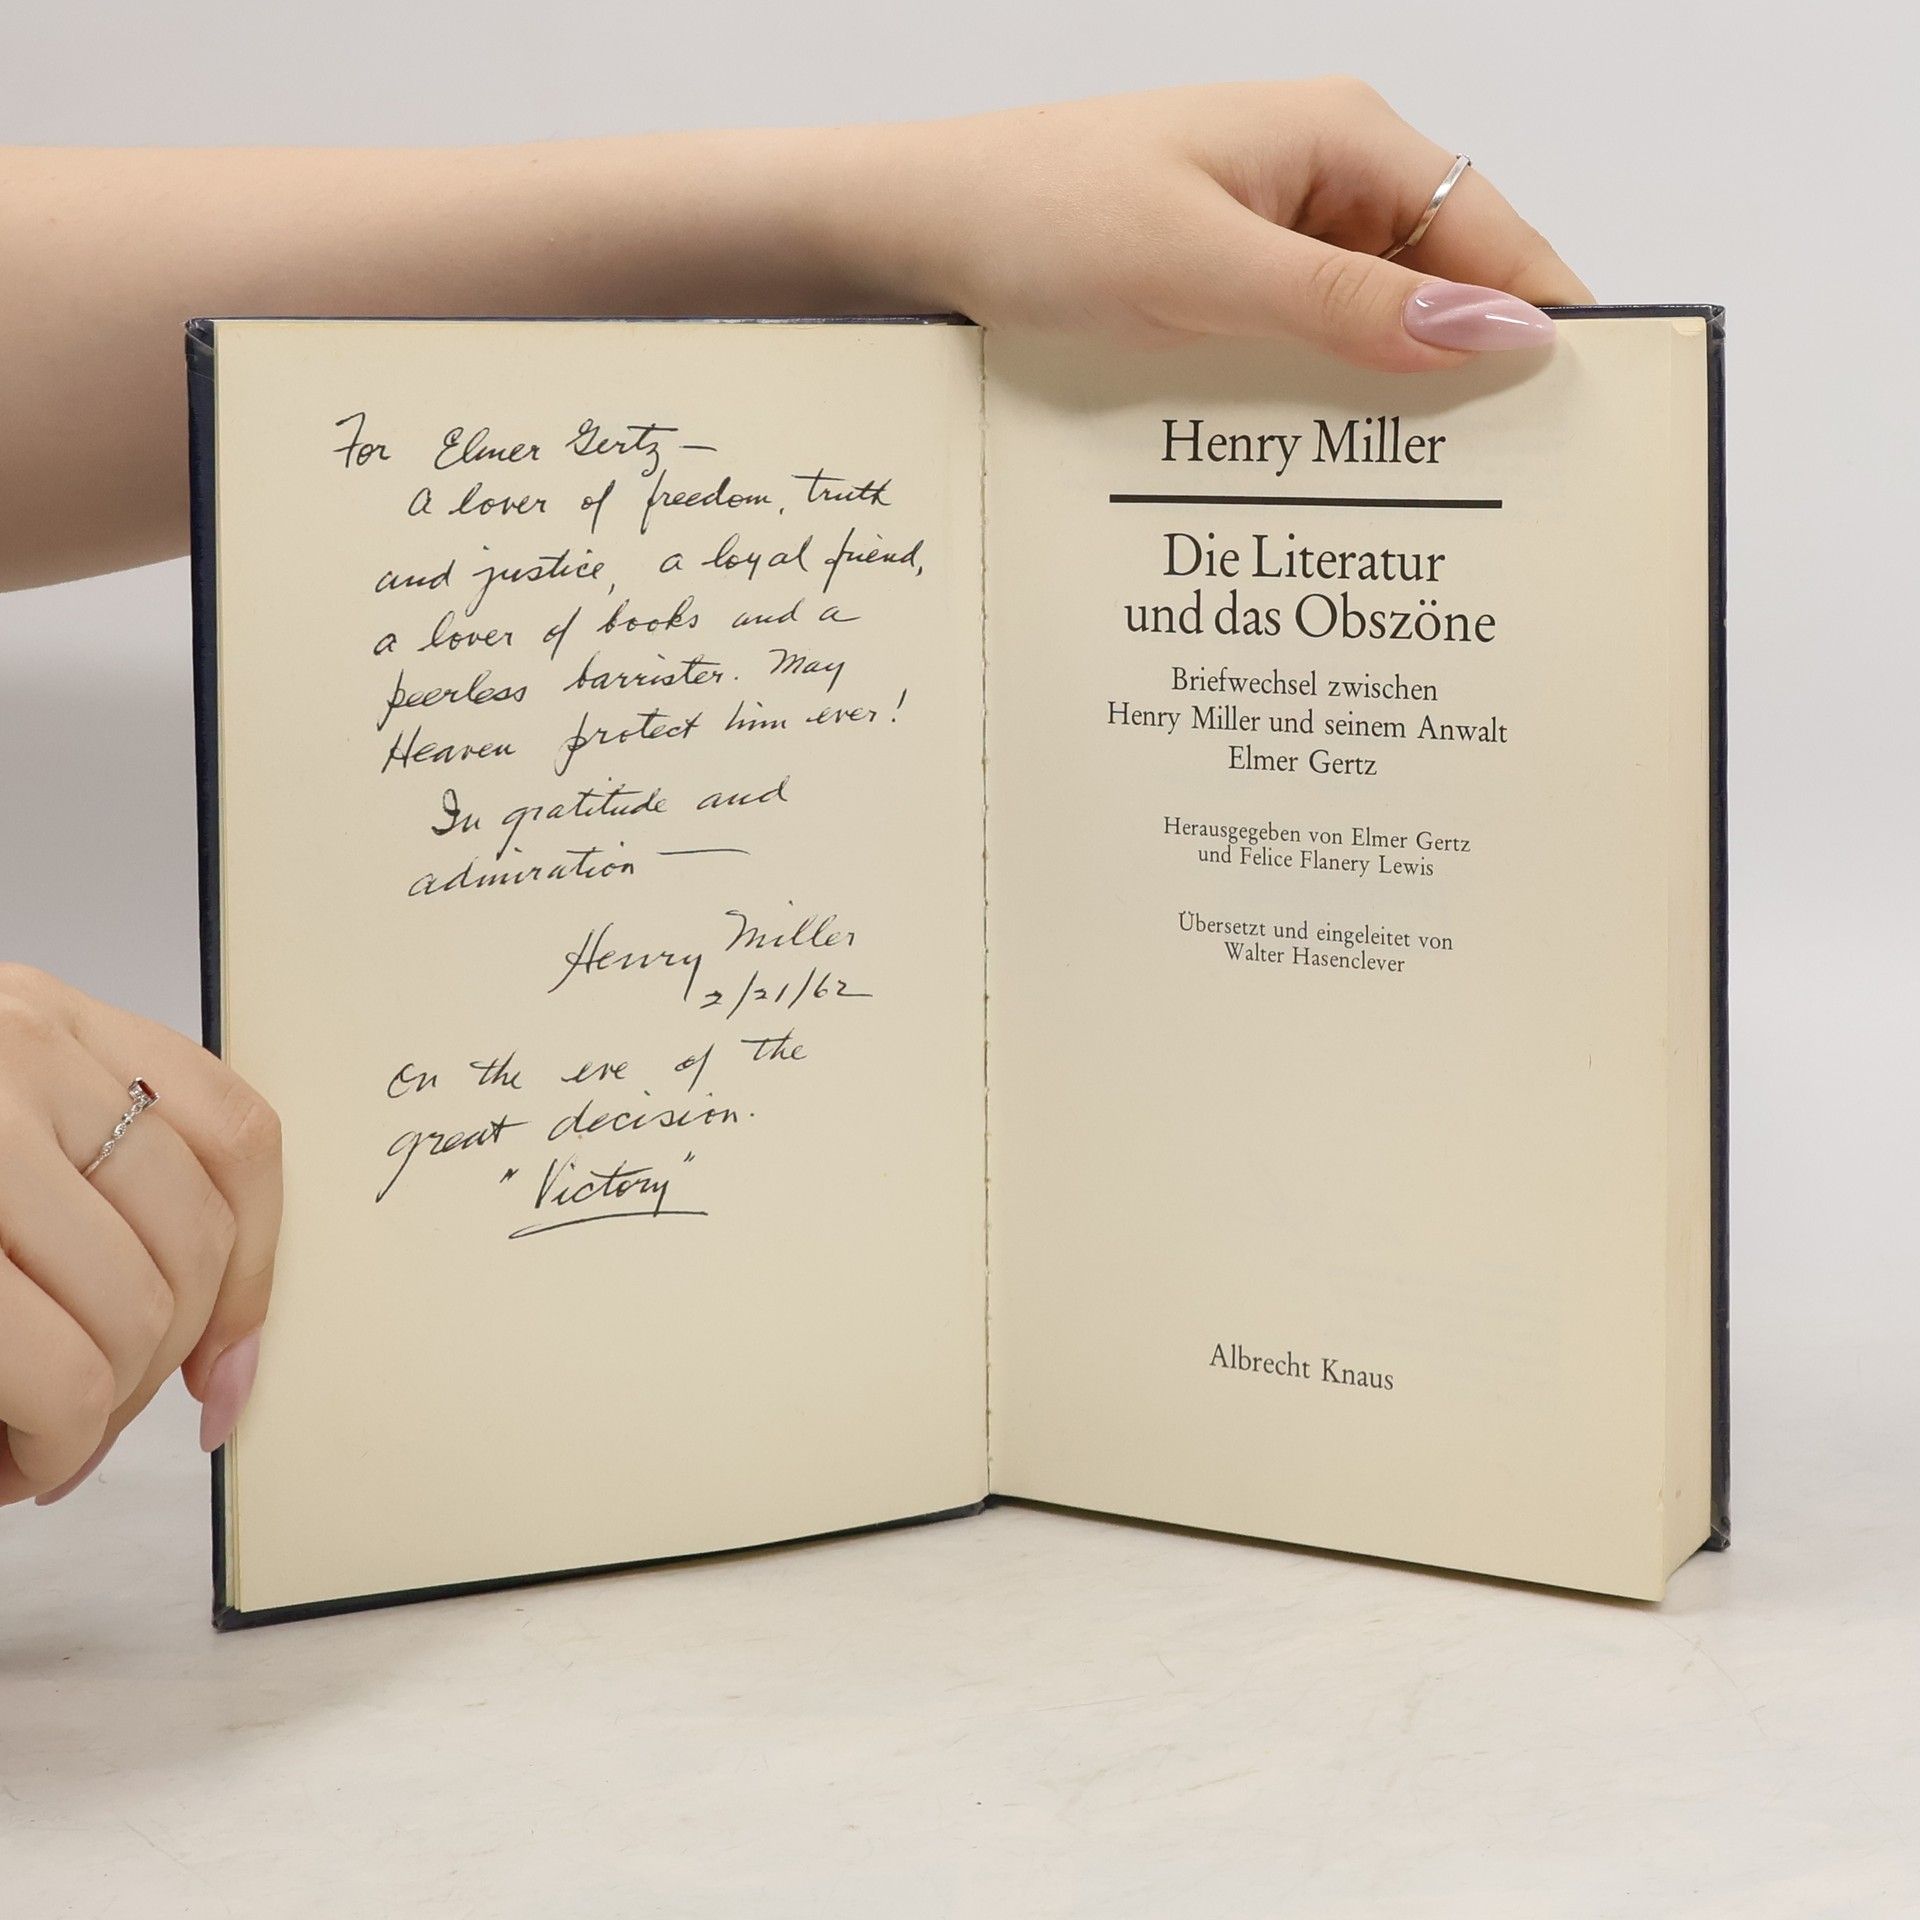 For Elmer Gertz —
a lover of freedom, truth
and justice, a loyal friend,
a lover of books and a
peerless barrister. May
Heaven protect him ever!
In gratitude and
admiration —
Henry Miller
2/21/62
On the eve of the
great decision.
"Victory"
Henry Miller
Die Literatur
und das Obszöne
Briefwechsel zwischen
Henry Miller und seinem Anwalt
Elmer Gertz
Herausgegeben von Elmer Gertz
und Felice Flanery Lewis
Übersetzt und eingeleitet von
Walter Hasenclever
Albrecht Knaus